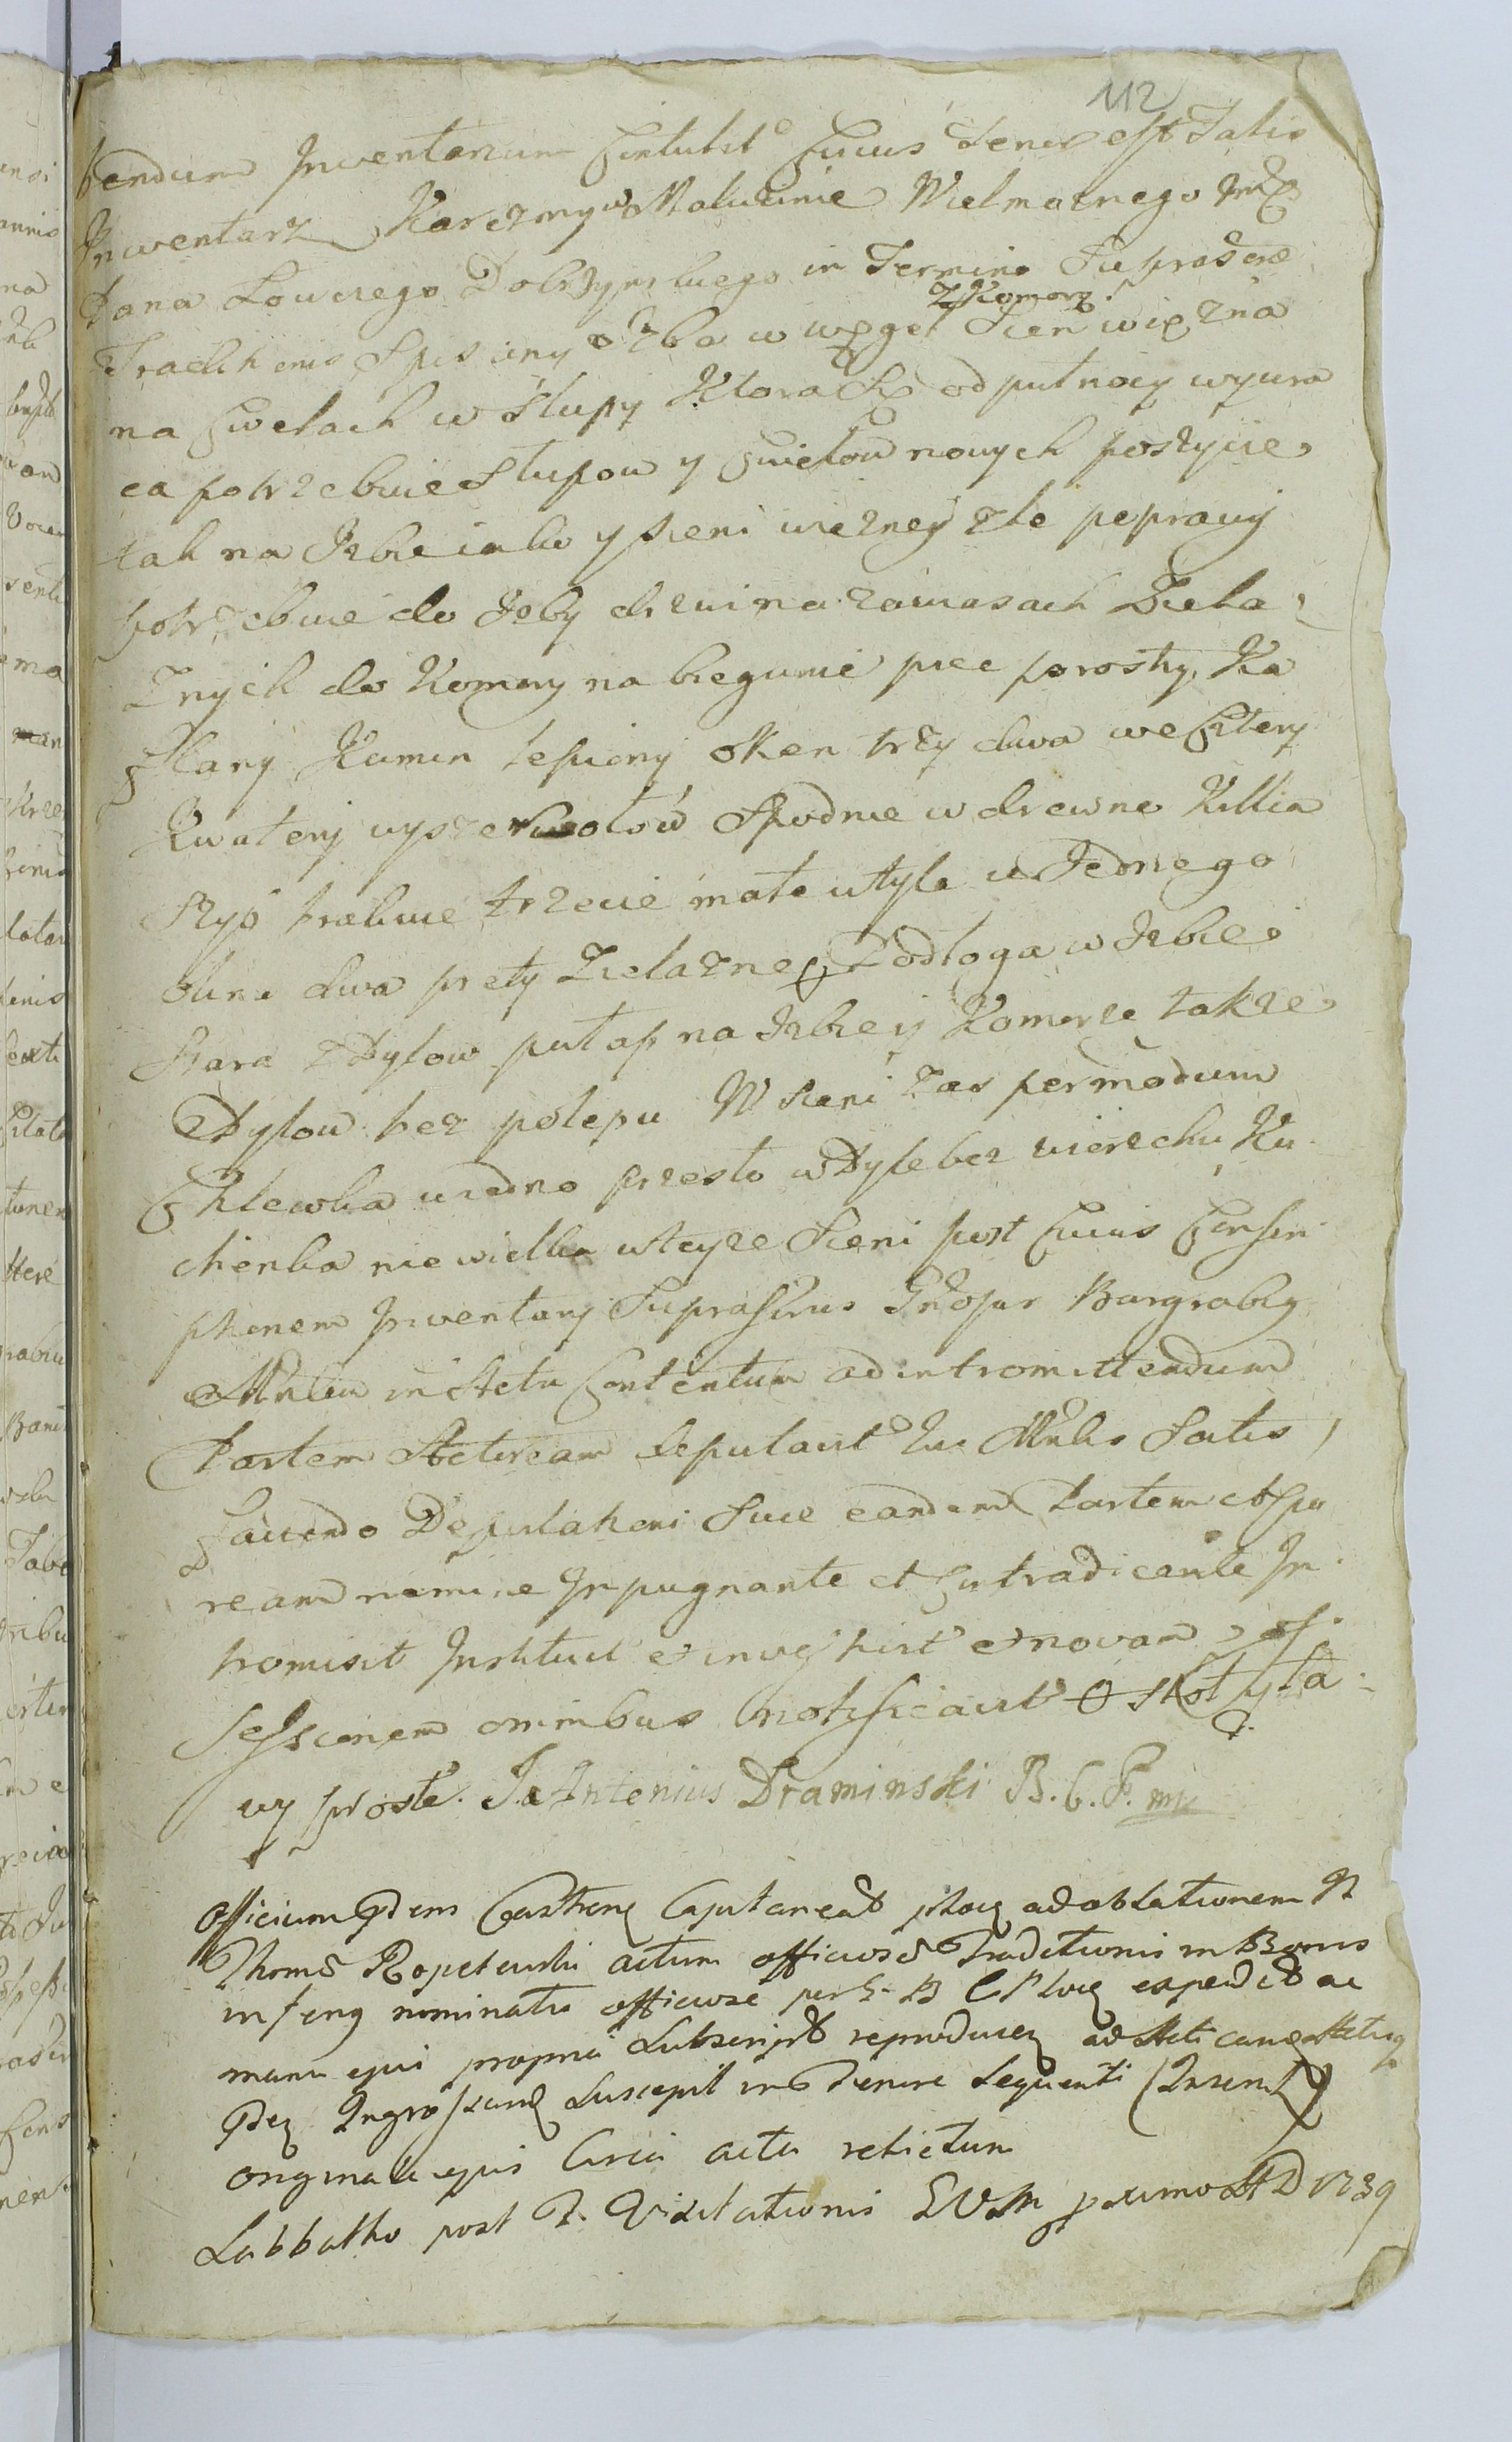 112
bendum Inventarium Contulit Cuius tenor est Talis
Inwentarz Karczmy w Maluzinie Wielmoznego Jmć
Pana Łowczego Dobrzynskiego in Termino Supraścrae
Traditionis Spisany Izba w węgeł z Komorą Sień więzna
na Cwelach w słupy Ktora Się od pułnocy wywra
ca potrzebuie słupow y Cwielow nowych poszycie
tak na Izbie iako y sieni wiezney złe poprawy
potrzebuie do Izby drzwi na zawiasach Ziela
znych do Komory na biegunie piec prosty Ka
flany Kumin lepiony oken trzy dwa we Cztery
Kwatery wysze Spodnie w drewno Killia
Szyb brakuie trzecie małe w tyle w Jednego
okna dwa prety Zielazne Podłoga w Izbie
Stara z Dylow pułap na Izbie y Komorze także
z Dylow bez polepu W sieni zas per modum
Chlewka iedno przesło w Dyle bez wierzchu Ku
chenka niewielka w teyze Sieni post Cuius Conscri
ptionem Inventarij Suprascrius Gnosus Burgrabig
in Actu Contentum ad intromittendum
Partem Actoream deputavit Qui Mnlis Satis
faciendo Deputationi Suae eandem Partem Acto
ream nemine Inpugnante et Contradicente In
tromisit Instituit et et novam Pos
sessionem omnibus notificavit
wy proste. Ja Antonius Draminski B. C. P. mp
Officium Pdens Castrens Capitaneat ploc ad oblationem N
Thomae Ropelewski actum officiosae Traditionis in Bonis
infering nominatis officiose per G. B C Ploc expedit ac
manu ejus propria Subscript reproducen ad Acticand Actisq
Pden Ingrossand Suscepit in Tenore Sequenti (Inserat)
originale ejus Circa acta relictum
Sabbatho post F. Visitationis BVM proximo AD 1739